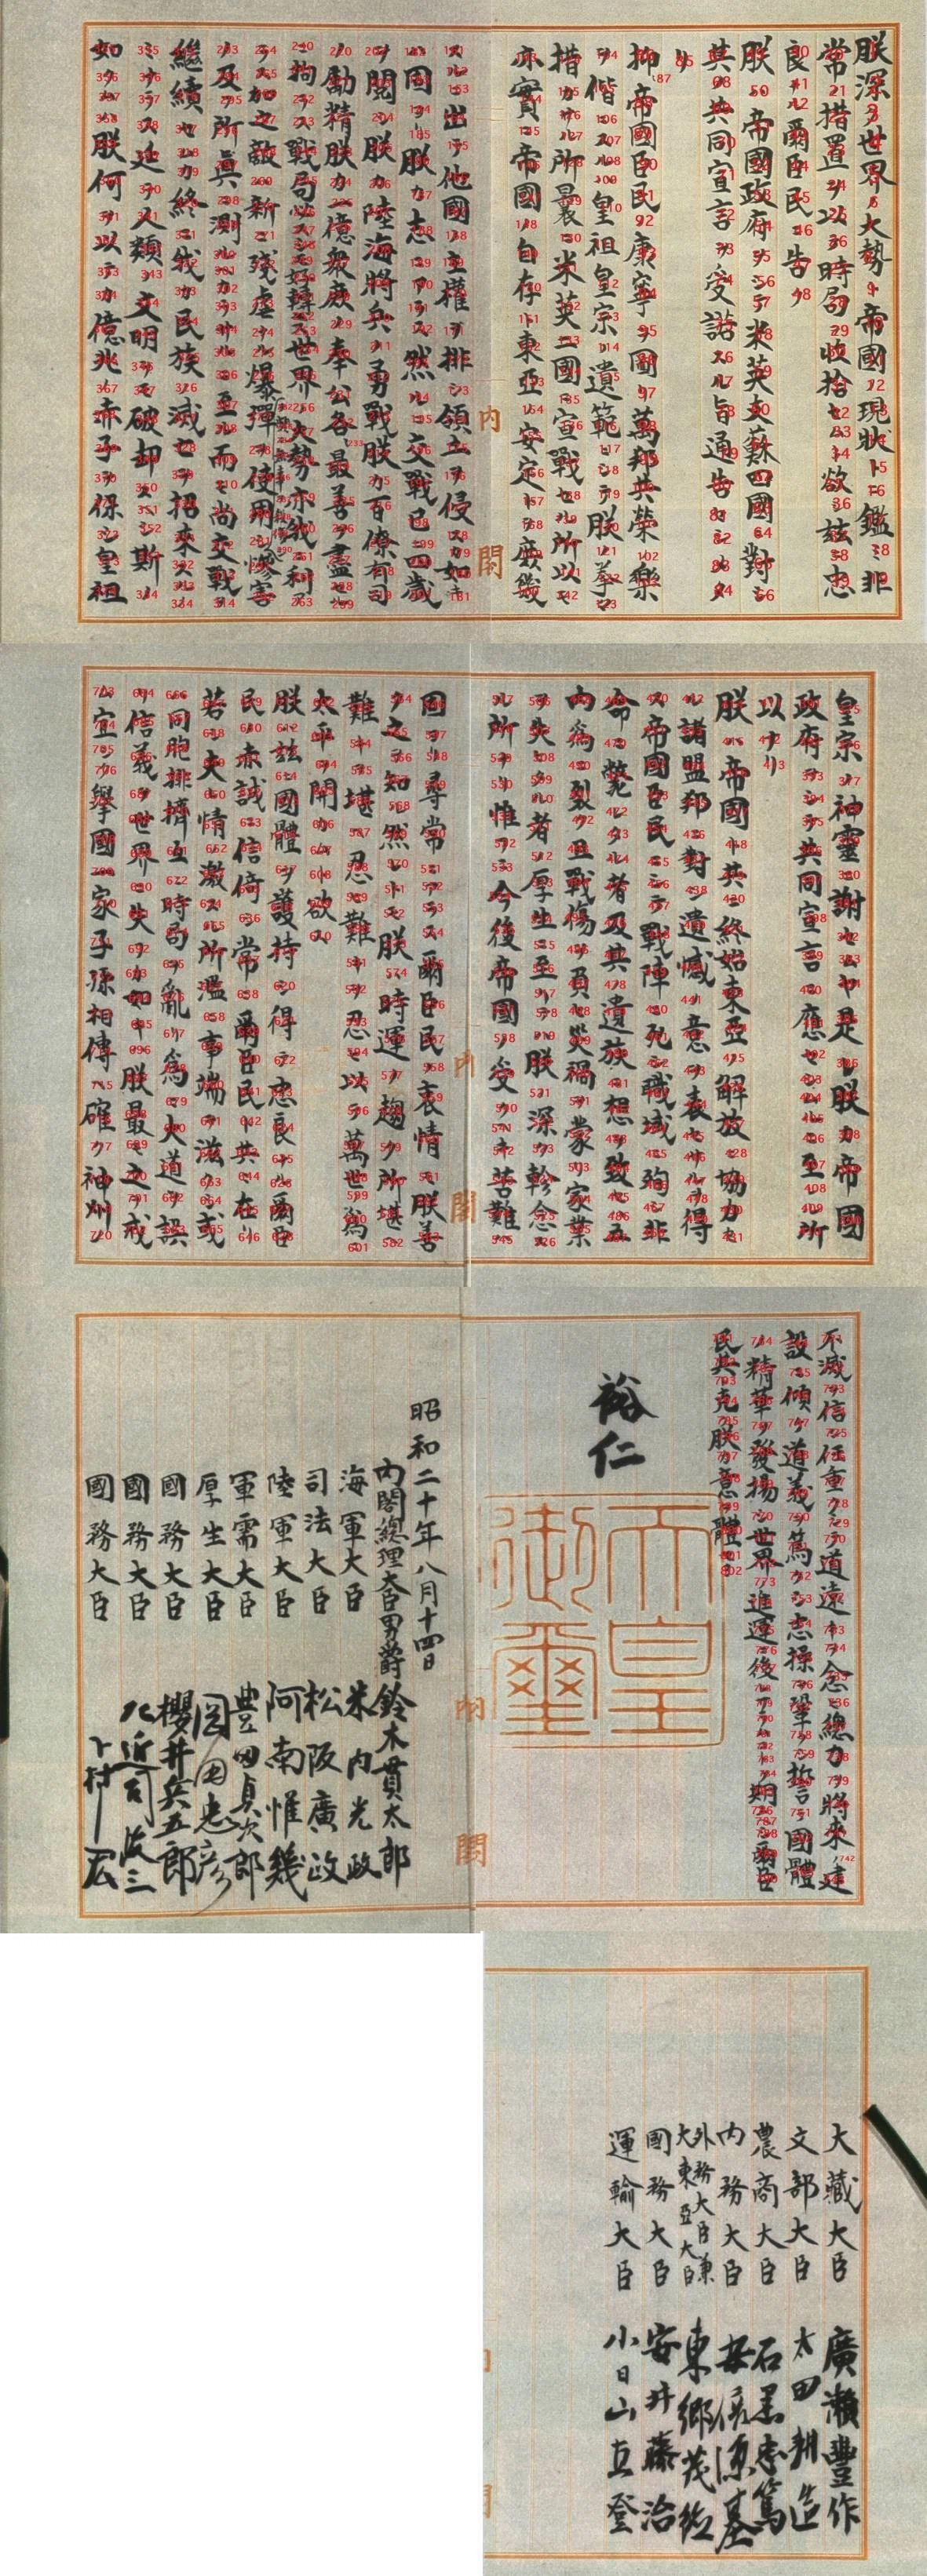 朕深ク世界ノ大勢ト帝國ノ現狀トニ鑑ミ非
常ノ措置ヲ以テ時局ヲ收拾セムト欲シ茲ニ忠
良ナル爾臣民ニ告ク
朕ハ帝國政府ヲシテ米英支蘇四國ニ對シ
其ノ共同宣言ヲ受諾スル旨通告セシメタ
リ
抑〻帝國臣民ノ康寧ヲ圖リ萬邦共榮ノ樂
ヲ偕ニスルハ皇祖皇宗ノ遺範ニシテ朕ノ拳々
措カサル所曩ニ米英二國ニ宣戰セル所以モ
亦實ニ帝國ノ自存ト東亞ノ安定トヲ庶幾
スルニ出テ他國ノ主權ヲ排シ領土ヲ侵スカ如キハ
固ヨリ朕カ志ニアラス然ルニ交戰已ニ四歲
ヲ閱シ朕カ陸海將兵ノ勇戰朕カ百僚有司
ノ勵精朕カ一億衆庶ノ奉公各〻最善ヲ盡セル
ニ拘ラス戰局必スシモ好轉セス世界ノ大勢亦我ニ利ア
ラス加之敵ハ新ニ殘虐ナル爆彈ヲ使用シテ頻ニ無辜ヲ殺傷シ慘害
ノ及フ所眞ニ測ルヘカラサルニ至ル而モ尚交戰ヲ
繼續セムカ終ニ我カ民族ノ滅亡ヲ招來スルノ
ミナラス延テ人類ノ文明ヲモ破却スヘシ斯ノ
如クムハ朕何ヲ以テカ億兆ノ赤子ヲ保シ皇祖
内閣
皇宗ノ神靈ニ謝セムヤ是レ朕カ帝國
政府ヲシテ共同宣言ニ應セシムルニ至レル所
以ナリ
朕ハ帝國ト共ニ終始東亞ノ解放ニ協力セ
ル諸盟邦ニ對シ遺憾ノ意ヲ表セサルヲ得
ス帝國臣民ニシテ戰陣ニ死シ職域ニ殉シ非
命ニ斃レタル者及其ノ遺族ニ想ヲ致セハ五
內爲ニ裂ク且戰傷ヲ負ヒ災禍ヲ蒙リ家業
ヲ失ヒタル者ノ厚生ニ至リテハ朕ノ深ク軫念ス
ル所ナリ惟フニ今後帝國ノ受クヘキ苦難ハ
固ヨリ尋常ニアラス爾臣民ノ衷情モ朕善
ク之ヲ知ル然レトモ朕ハ時運ノ趨ク所堪ヘ
難キヲ堪ヘ忍ヒ難キヲ忍ヒ以テ萬世ノ爲ニ
太平ヲ開カムト欲ス
朕ハ茲ニ國體ヲ護持シ得テ忠良ナル爾臣
民ノ赤誠ニ信倚シ常ニ爾臣民ト共ニ在リ
若シ夫レ情ノ激スル所濫ニ事端ヲ滋クシ或
ハ同胞排擠互ニ時局ヲ亂リ爲ニ大道ヲ誤
リ信義ヲ世界ニ失フカ如キハ朕最モ之ヲ戒
ム宜シク擧國一家子孫相傳ヘ確ク神州ノ
内閣
不滅ヲ信シ任重クシテ道遠キヲ念ヒ總力ヲ將來ノ建
設ニ傾ケ道義ヲ篤クシ志操ヲ鞏クシ誓テ國體
ノ精華ヲ發揚シ世界ノ進運ニ後レサラムコトヲ期スヘシ爾臣
民其レ克ク朕カ意ヲ體セヨ
裕仁
天皇御璽
内閣
昭和二十年八月十四日
内閣總理大臣男爵 鈴木貫太郎
海軍大臣 米内光政
司法大臣 松阪廣政
陸軍大臣 阿南惟幾
軍需大臣 豊田貞次郎
厚生大臣 岡田忠彦
國務大臣 櫻井兵五郎
國務大臣 左近司政三
國務大臣 下村宏
大藏大臣 廣瀬豐作
文部大臣 太田耕造
農商大臣 石黒忠篤
内務大臣 安倍源基
外務大臣兼
大東亞大臣 東郷茂徳
國務大臣 安井藤治
運輸大臣 小日山直登